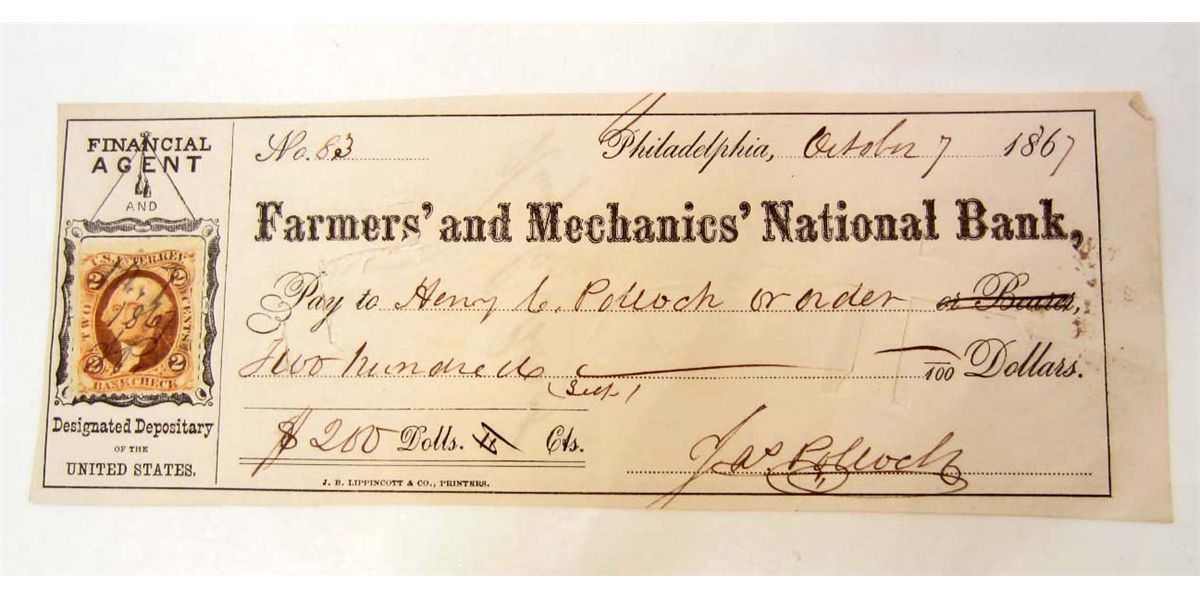 FINANCIAL
AGENT
AND
U.S. INTER. REV.
2 2
TWO CENTS
186
2 2
BANK CHECK
Designated Depositary
OF THE
UNITED STATES.
No. 83 Philadelphia, October 7 1867
Farmers' and Mechanics' National Bank,
Pay to Henry C. Pollock or order or Bearer,
Two hundred /100 Dollars.
$ 200 Dolls. Cts.
Jas Pollock
J. B. LIPPINCOTT & CO., PRINTERS.